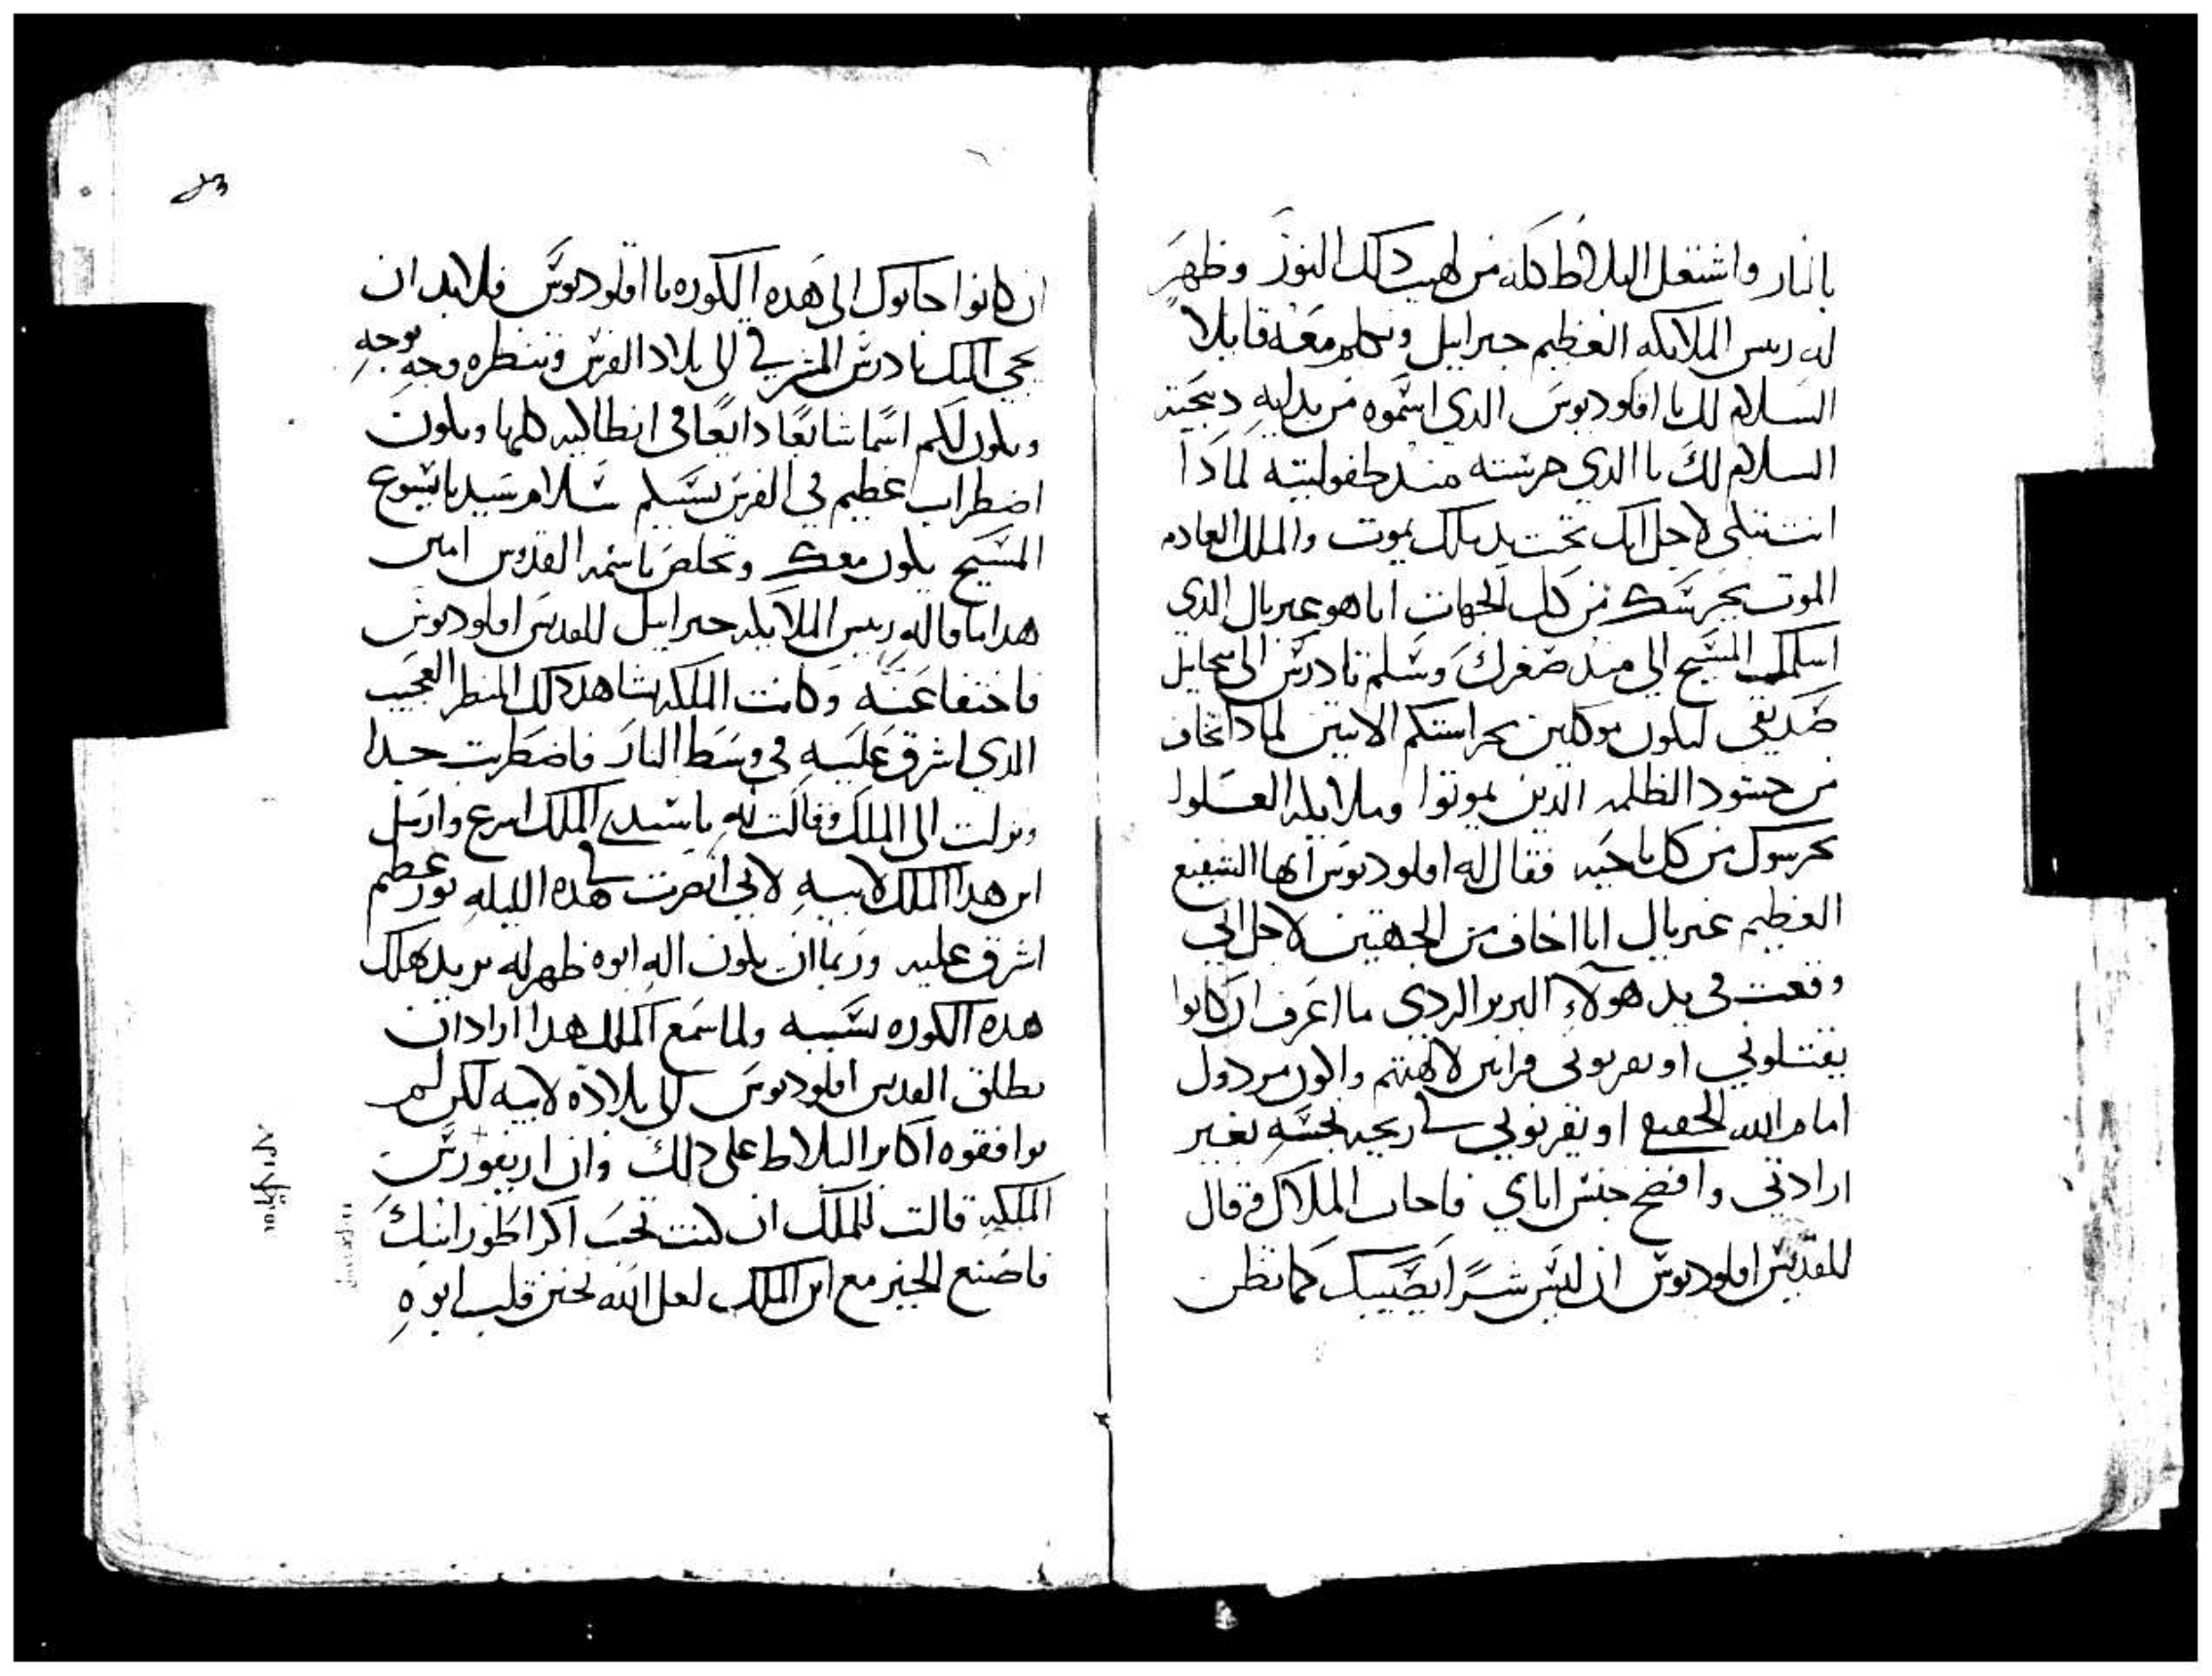 بالنار واشتعل البلاط كله من لهيب ذلك النور وظهر
له رييس الملايكه العظيم جبراييل وتكلم معه قايلا
السلام لك يا اقلوديوس الدي اسموه من يد ليه
السلام لك يا الدي حرسته مند طفوليته لمادا
انت تبكي لاجل انك تحت يد ملك يموت والملك العادم
الموت يحرسك من كل الجهات انا هو غبريال الدي
اسلمك المسيح الي مند صغرك وسلم تادرس الي ميخاييل
صديقي ليكون موكلين بحراستكم الاتنين لمادا تخاف
من جنود الظلمه الدين يموتوا وملايكه العلو
يحرسوك من كل ناحيه فقال له اقلوديوس ايها الشفيع
العظيم غبريال انا اخاف من الجهتين لاجل اني
وقعت في يد هولاء البربر الردي ما اعرف ان كانوا
يقتلوني او يقربوني قرابين لالهتهم واكون مردول
امام الله الحقيقي او يقربوني في ريجه نجسه بغير
ارادتي وافضح جنس اباي فاجاب الملاك وقال
للقديس اقلوديوس ان ليس شرا يصيبك كما تظن
ان كانوا جابوك الى هده الكوره يا اقلوديوس فلا بد ان
يجي اليك تادرس المشرقي الى بلاد الفرس وتنظره وجه بوجه
ويكون لكم اسما شايعا دايعا في انطاكيه كلها ويكون
اضطراب عظيم في الفرس بسببكم سلام سيدنا يسوع
المسيح يكون معك وتخلص باسمه القدوس امين
هدا ما قاله رييس الملايكه جبراييل للقديس اقلوديوس
فاختفا عنه وكانت الملكه تشاهد ذلك المنظر العجيب
الدي اشرق عليه في وسط النار فاضطربت جدا
ونزلت الى الملك وقالت له يا سيدي الملك اسرع وارسل
ابن هدا الملك لابيه لاني ابصرت في هده الليله نور عظيم
اشرق عليه وربما ان يكون اله ابوه ظهر له يريد هلاك
هده الكوره بسببه ولما سمع الملك هدا اراد ان
يطلق القديس اقلوديوس الى بلاده لابيه لكن لم
يوافقوه اكابر البلاط على ذلك وان
الملكه قالت للملك ان كنت تحب
فاصنع الخير مع ابن الملك لعل الله يحنن قلب ابوه